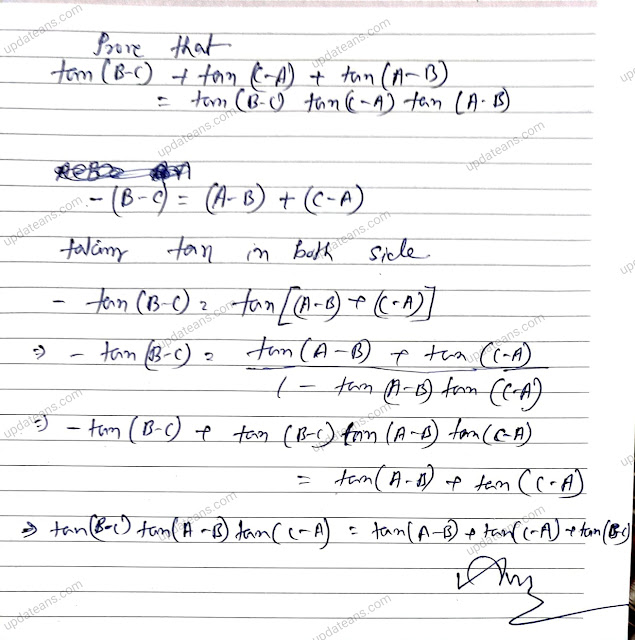 Prove that
tan(B-C) + tan(C-A) + tan(A-B)
= tan(B-C) tan(C-A) tan (A-B)
-(B-C) = (A-B) + (C-A)
taking tan in both side
- tan(B-C) = tan[(A-B) + (C-A)]
⇒ - tan(B-C) = tan(A-B) + tan(C-A)
1 - tan(A-B) tan(C-A)
⇒ - tan(B-C) + tan(B-C) tan(A-B) tan(C-A)
= tan(A-B) + tan(C-A)
⇒ tan(B-C) tan(A-B) tan(C-A) = tan(A-B) + tan(C-A) + tan(B-C)
updateans.com